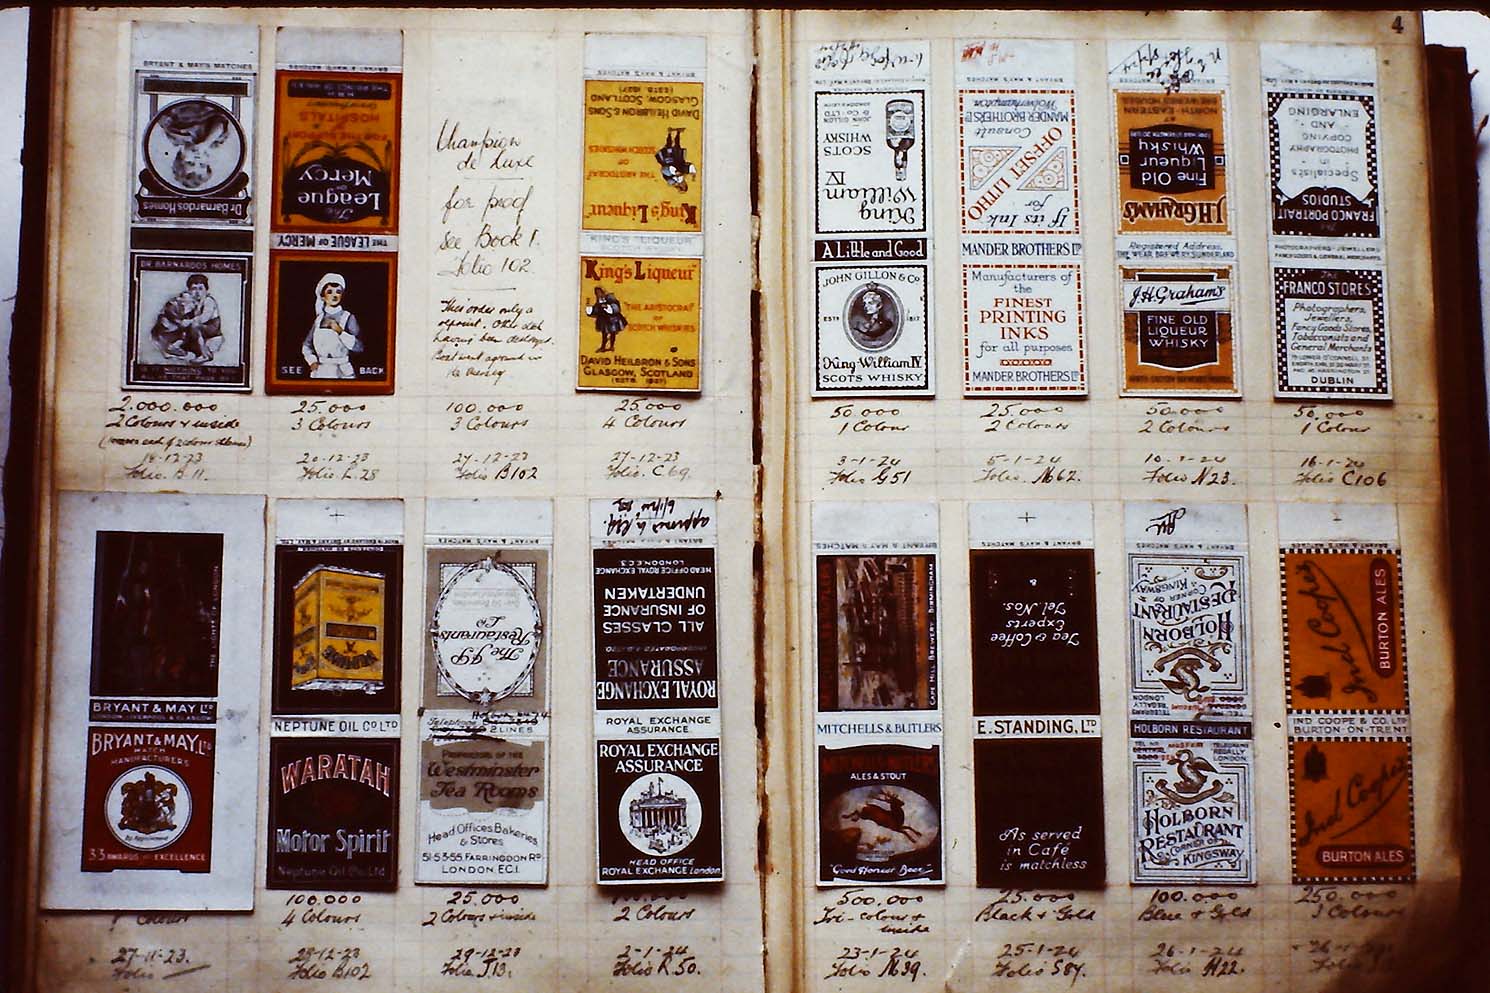 4
BRYANT & MAY'S MATCHES
Dr Barnardos Homes
DR BARNARDOS HOMES
2.000.000
2 Colours & inside
18-12-23
Folio B.11.
H.R.H.
THE PRINCE OF WALES
FOR THE SUPPORT
HOSPITALS
The
League
OF
Mercy
THE LEAGUE OF MERCY
SEE BACK
25.000
3 Colours
20-12-23
Folio L.28
Champion
de Luxe
for proof
See Book 1.
Folio 102.
This order only a
reprint. Other slab
having been destroyed.
100.000
3 Colours
27-12-23
Folio B102
BRYANT & MAY'S MATCHES
King's Liqueur
"THE ARISTOCRAT"
OF
SCOTCH WHISKIES
DAVID HEILBRON & SONS
GLASGOW, SCOTLAND
(ESTB. 1827)
KING'S LIQUEUR
SCOTCH WHISKY
King's Liqueur
"THE ARISTOCRAT"
OF
SCOTCH WHISKIES
DAVID HEILBRON & SONS
GLASGOW, SCOTLAND
(ESTB. 1827)
25.000
4 Colours
27-12-23
Folio. C69.
King
William
IV
SCOTS
WHISKY
JOHN GILLON
& Co LTD
A Little and Good
JOHN GILLON & Co
ESTD 1817
King William IV
SCOTS WHISKY
50.000
1 Colour
3-1-24
Folio G51
BRYANT & MAY'S MATCHES
If its Ink
for
OFFSET LITHO
Consult
MANDER BROTHERS LTD
Wolverhampton
MANDER BROTHERS LTD
Manufacturers of
the
FINEST
PRINTING
INKS
for all purposes
MANDER BROTHERS LTD
25.000
2 Colours
5-1-24
Folio. M62.
J.H.GRAHAM'S
Fine Old
Liqueur
Whisky
NORTH EASTERN
BREWERIES HOUSES
Registered Address,
THE WEAR BREWERY, SUNDERLAND
J.H.Graham's
FINE OLD
LIQUEUR
WHISKY
NORTH EASTERN BREWERIES HOUSES
50.000
2 Colours
10-1-24
Folio N23.
The
FRANCO PORTRAIT
STUDIOS
Specialists
in
PHOTOGRAPHY
COPYING
AND
ENLARGING
PHOTOGRAPHERS - JEWELLERS
FANCY GOODS & GENERAL MERCHANTS
The
FRANCO STORES
Photographers,
Jewellers,
Fancy Goods Stores,
Tobacconists and
General Merchants
DUBLIN
50.000
1 Colour
16-1-24
Folio C106
BRYANT & MAY LTD
LONDON · LIVERPOOL & GLASGOW
BRYANT & MAY, LTD
MATCH
MANUFACTURERS
By Appointment
33 AWARDS FOR EXCELLENCE
Colours
27-11-23.
Folio
NEPTUNE OIL CO LTD
WARATAH
Motor Spirit
Neptune Oil Co. Ltd
100.000
4 Colours
28-12-23
Folio B102
The J.P.
Restaurants
LTD
Telephone
2 LINES
PROPRIETORS OF THE
Westminster
Tea Rooms
Head Offices, Bakeries
& Stores
51·53·55. FARRINGDON RD
LONDON E.C.1.
25.000
2 Colours & inside
29-12-23
Folio J13.
ROYAL EXCHANGE
ASSURANCE
INCORPORATED A.D. 1720
ALL CLASSES
OF INSURANCE
UNDERTAKEN
HEAD OFFICE ROYAL EXCHANGE
LONDON E.C.3
ROYAL EXCHANGE
ASSURANCE
ROYAL EXCHANGE
ASSURANCE
HEAD OFFICE
ROYAL EXCHANGE London
2 Colours
2-1-24
Folio R.50.
BRYANT & MAY'S MATCHES
CAPE HILL BREWERY BIRMINGHAM
MITCHELLS & BUTLERS
MITCHELLS & BUTLERS
ALES & STOUT
"Good Honest Beer"
500.000
Tri-colour &
inside
23-1-24
Folio M39.
BRYANT & MAY'S MATCHES
Tea & Coffee
Experts
Tel Nos.
&
E. STANDING, LTD
As served
in Café
is matchless
25.000
Black & Gold
25-1-24
Folio S87.
HOLBORN
RESTAURANT
CORNER OF
KINGSWAY
HOLBORN RESTAURANT
TELEGRAMS
REGALLY
LONDON
HOLBORN
RESTAURANT
CORNER OF
KINGSWAY
100.000
Blue & Gold
26-1-24
Folio H22.
Ind Coope's
BURTON ALES
IND COOPE & CO. LTD
BURTON-ON-TRENT
Ind Coope's
BURTON ALES
250.000
3 Colours